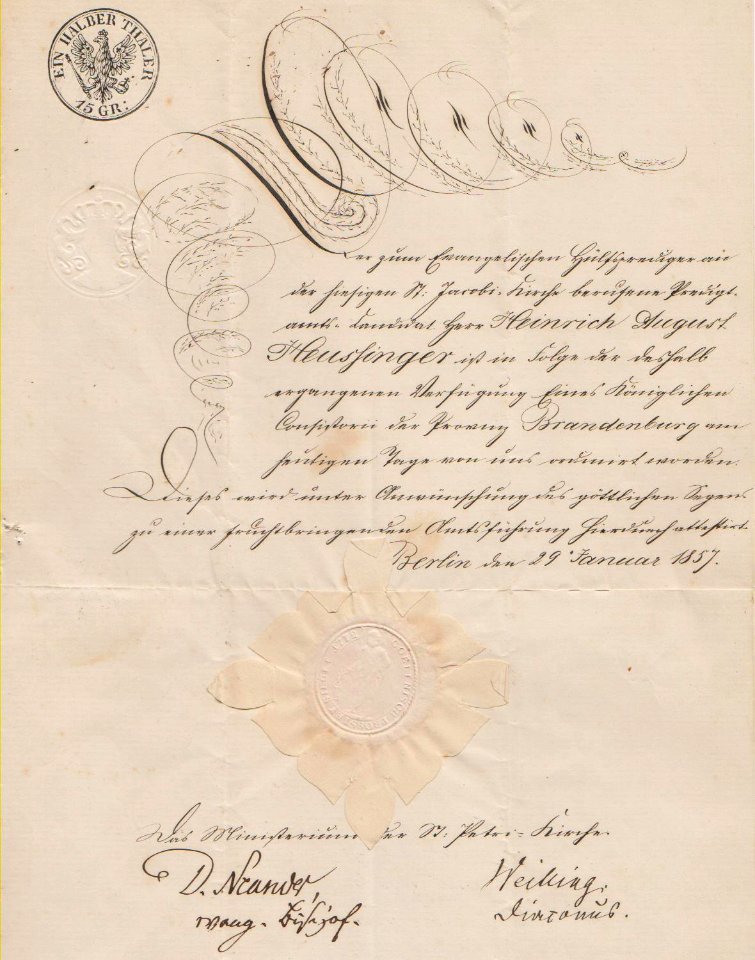 EIN HALBER THALER
15 GR:
Der zum Evangelischen Hülfsprediger an
der hiesigen St: Jacobi-Kirche berufene Predigt-
amts-Candidat Herr Heinrich August
Heussinger ist in Folge der deshalb
ergangenen Verfügung Eines Königlichen
Consistorii der Provinz Brandenburg am
heutigen Tage von uns ordinirt worden.
Dieses wird unter Anwünschung des göttlichen Segens
zu einer fruchtbringenden Amtsführung hierdurch attestirt.
Berlin den 29 Januar 1857.
Das Ministerium der St: Petri-Kirche.
D. Neander,
evang. Bischof.
Diaconus.